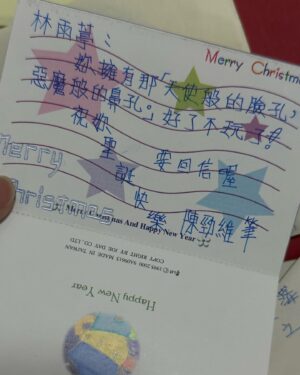 林雨葶：
Merry Christmas
妳擁有那「天使般的臉孔，
惡魔般的鼻孔。」好了不玩了!!
祝妳
聖 要回信喔
誕
快
樂 陳勁維筆
Merry
Christmas
Merry Christmas And Happy New Year
COPY RIGHT BY JOE DAY CO., LTD.
MADE IN TAIWAN
Happy New Year